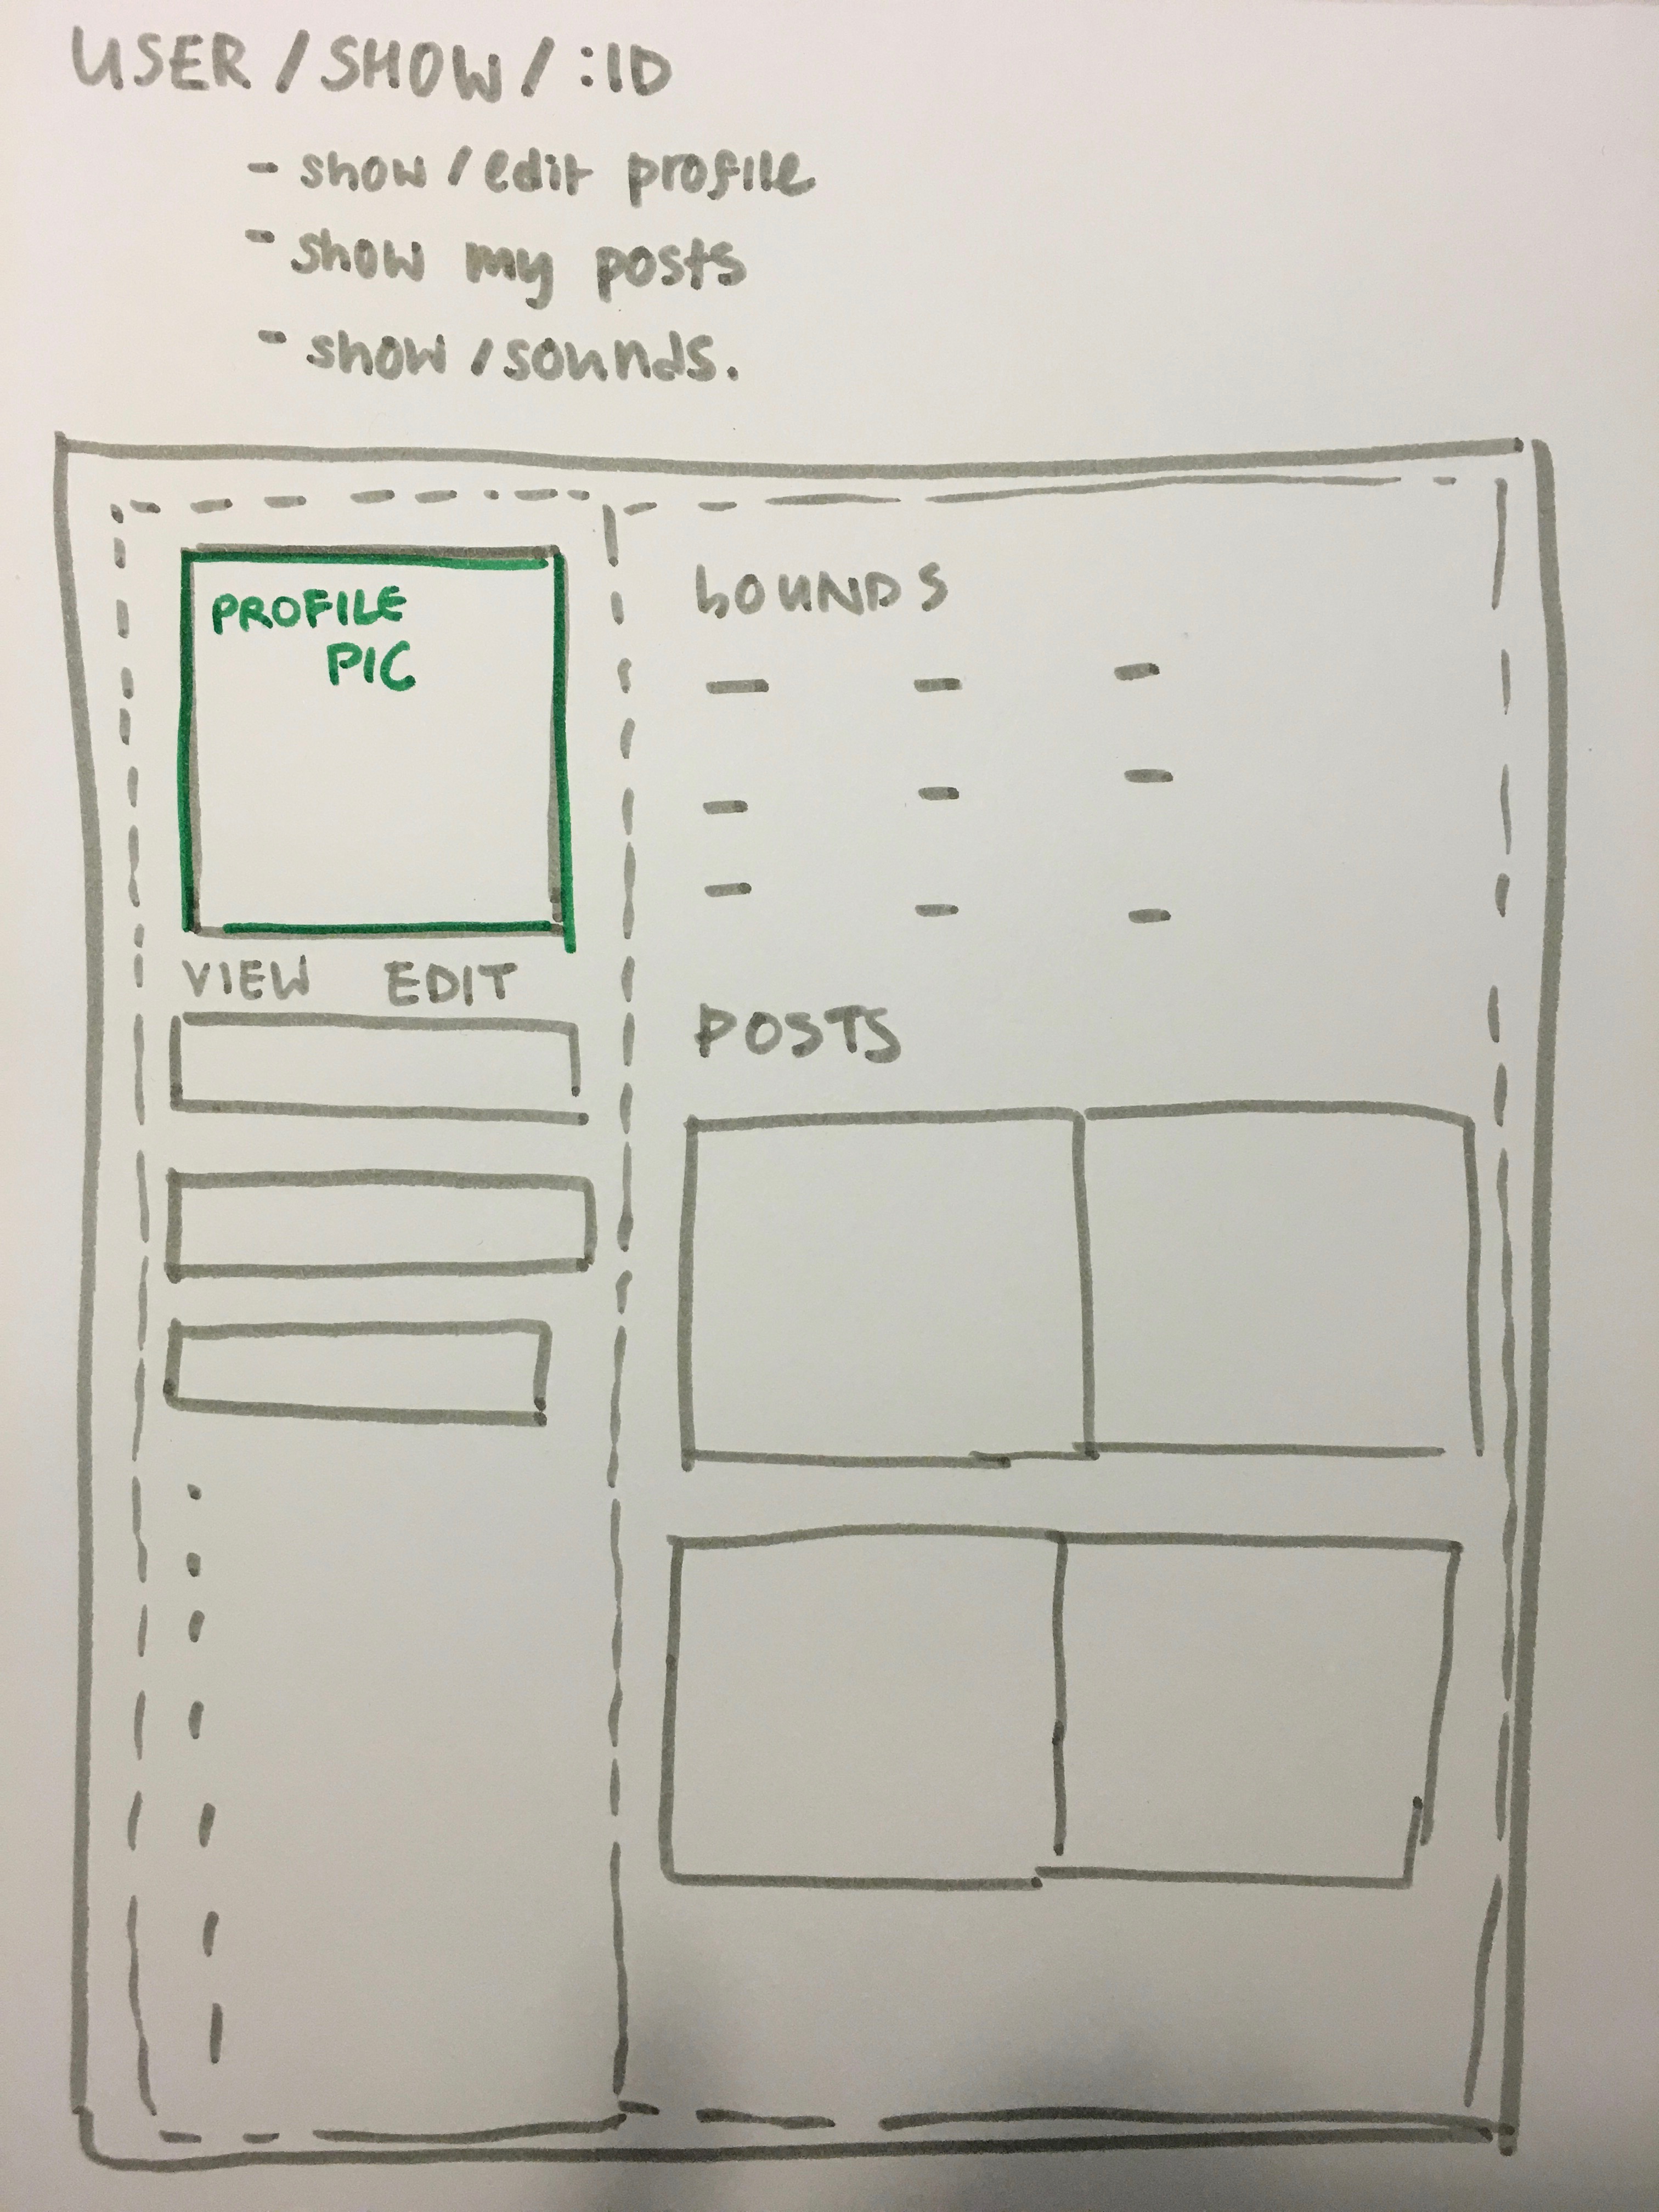 USER / SHOW / :ID
- show / edit profile
- show my posts
- show / sounds.
PROFILE
PIC
VIEW EDIT
SOUNDS
POSTS